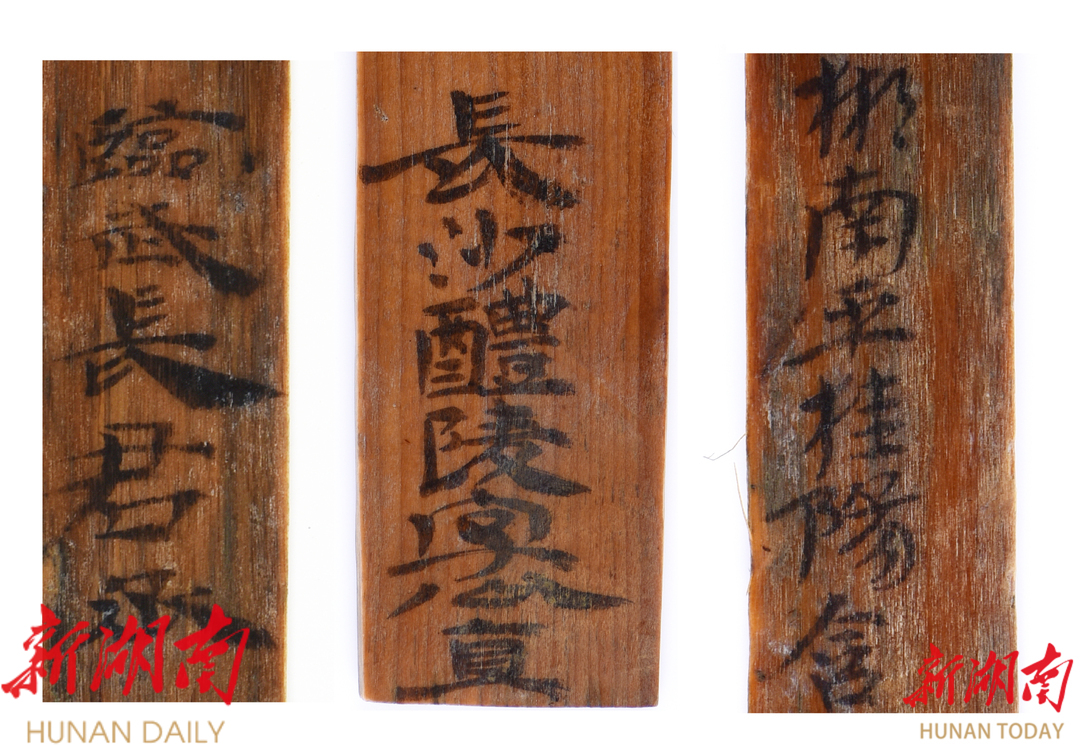 臨武長君丞
長沙醴陵公直
郴南平桂陽含
新湖南
HUNAN DAILY
新湖南
HUNAN TODAY